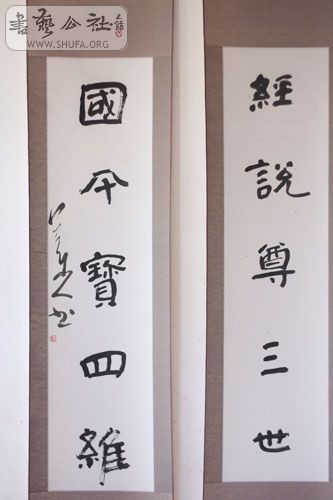 書藝公社
WWW.SHUFA.ORG
經說尊三世
國今寶四維